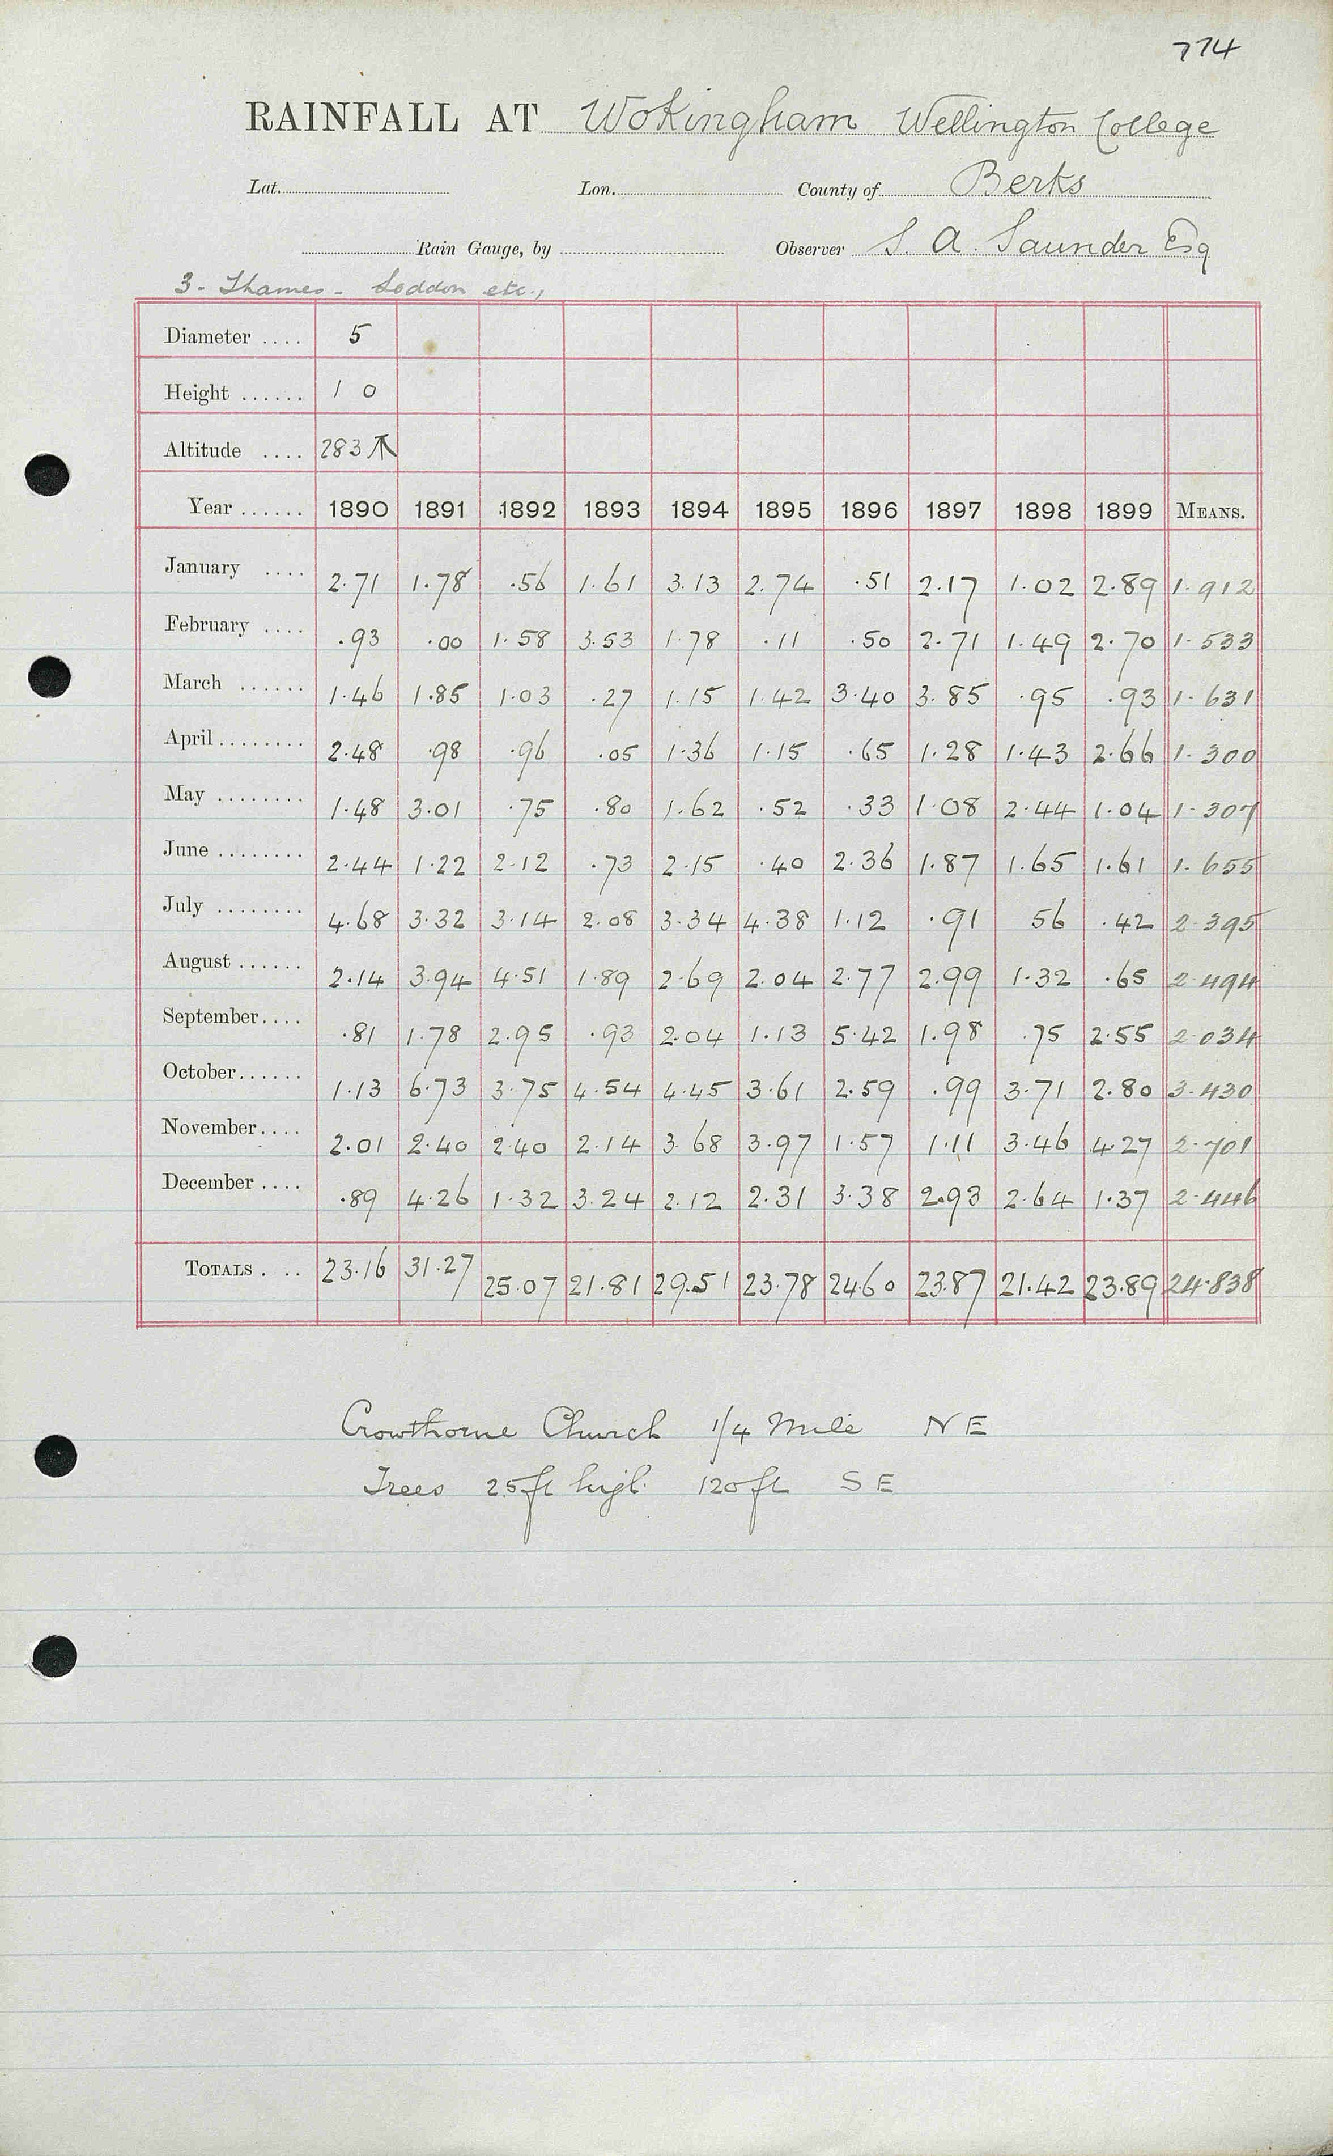 774
RAINFALL AT Wokingham Wellington College
Lat. Lon. County of Berks
Rain Gauge, by Observer S. A. Saunder Esq
3 - Thames - Loddon etc.,
Diameter .... 5
Height ...... 1 0
Altitude .... 283
Year ...... 1890 1891 1892 1893 1894 1895 1896 1897 1898 1899 MEANS.
January .... 2.71 1.78 .56 1.61 3.13 2.74 .51 2.17 1.02 2.89 1.912
February .... .93 .00 1.58 3.53 1.78 .11 .50 2.71 1.49 2.70 1.533
March ...... 1.46 1.85 1.03 .27 1.15 1.42 3.40 3.85 .95 .93 1.631
April ........ 2.48 .98 .96 .05 1.36 1.15 .65 1.28 1.43 2.66 1.300
May ........ 1.48 3.01 .75 .80 1.62 .52 .33 1.08 2.44 1.04 1.307
June ........ 2.44 1.22 2.12 .73 2.15 .40 2.36 1.87 1.65 1.61 1.655
July ........ 4.68 3.32 3.14 2.08 3.34 4.38 1.12 .91 56 .42 2.395
August ...... 2.14 3.94 4.51 1.89 2.69 2.04 2.77 2.99 1.32 .65 2.494
September .... .81 1.78 2.95 .93 2.04 1.13 5.42 1.98 .75 2.55 2.034
October ...... 1.13 6.73 3.75 4.54 4.45 3.61 2.59 .99 3.71 2.80 3.430
November .... 2.01 2.40 2.40 2.14 3.68 3.97 1.57 1.11 3.46 4.27 2.701
December .... .89 4.26 1.32 3.24 2.12 2.31 3.38 2.93 2.64 1.37 2.446
TOTALS . ... 23.16 31.27 25.07 21.81 29.51 23.78 24.60 23.87 21.42 23.89 24.838
Crowthorne Church 1/4 Mile NE
Trees 25ft high 120ft SE